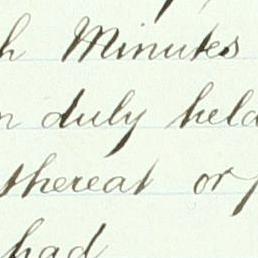 h Minutes
n duly held
thereat or
had